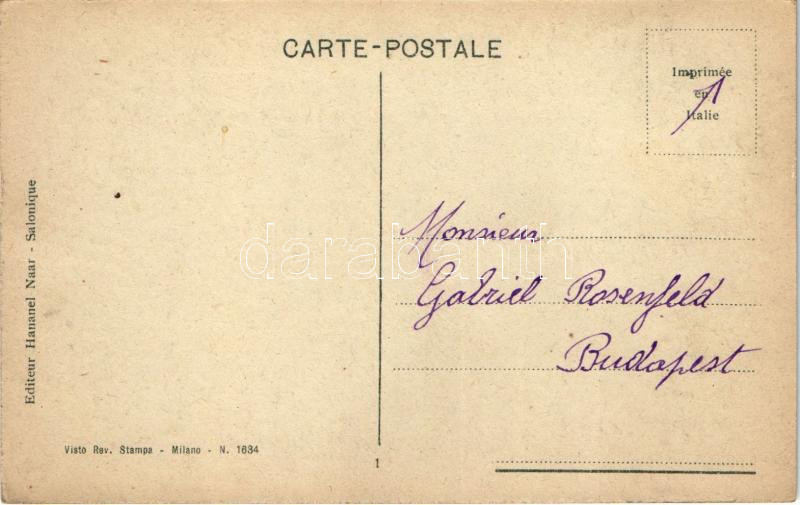 CARTE-POSTALE
Imprimée
en
Italie
Editeur Hananel Naar - Salonique
Monsieur
darabanth
Gabriel Rosenfeld
Budapest
Visto Rev. Stampa - Milano - N. 1634
1